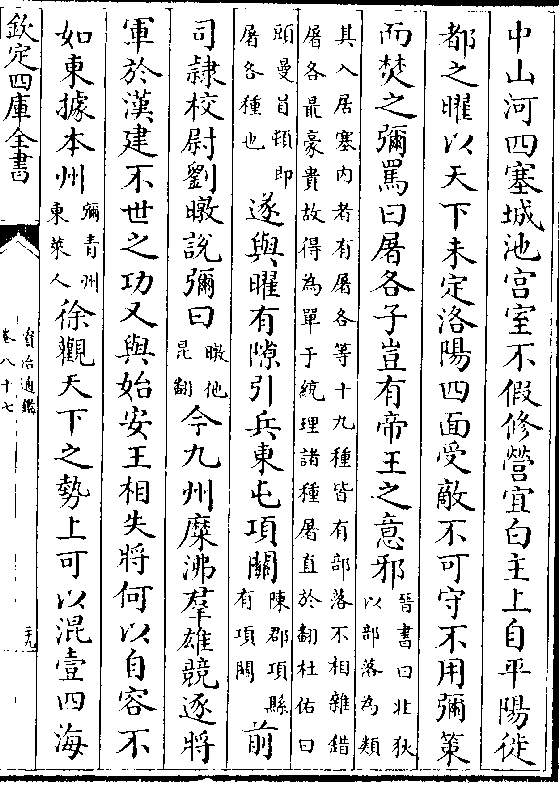 中山河四塞城池宫室不假修營宜白主上自平陽徙
都之曜以天下未定洛陽四面受敵不可守不用彌策
而焚之彌罵曰屠各子豈有帝王之意邪晉書曰北狄以部落為類
其入居塞內者有屠各等十九種皆有部落不相雜錯
屠各最豪貴故得為單于統理諸種屠直於翻杜佑曰
頭曼冒頓即屠各種也遂與曜有隙引兵東屯項關陳郡項縣有項關前
司隷校尉劉暾說彌曰暾他昆翻今九州糜沸羣雄競逐將
軍於漢建不世之功又與始安王相失將何以自容不
如東據本州彌青州東萊人徐觀天下之勢上可以混壹四海
欽定四庫全書
資治通鑑
卷八十七
二九